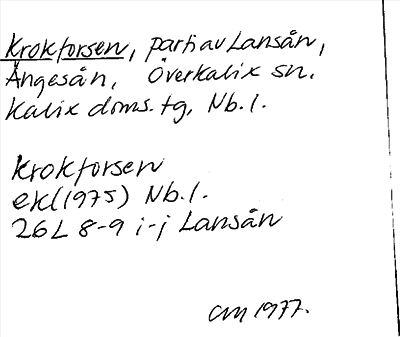 Krokforsen, parti av Lansån,
Ängesån, Överkalix sn.
Kalix doms. tg, Nb. l.
Krokforsen
ek (1975) Nb. l.
26L 8-9 i-j Lansån
CM 1977.